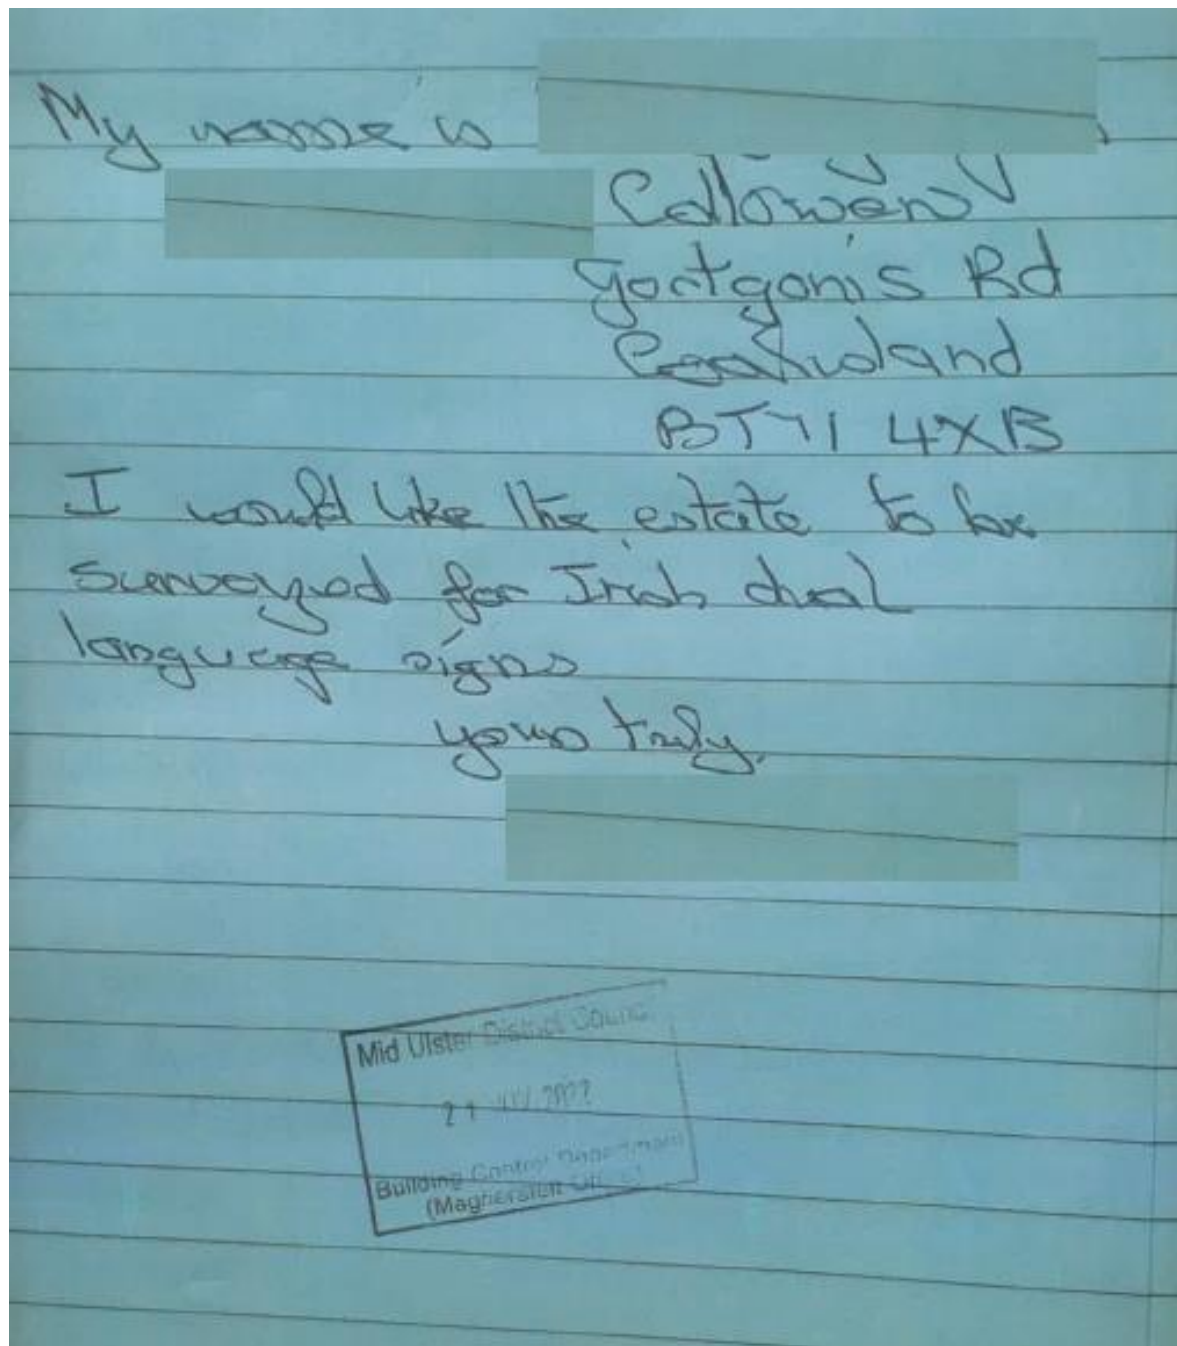 My name is
Callowen
Gortgonis Rd
Coalisland
BT71 4XB
I would like the estate to be
surveyed for Irish dual
language signs
yours truly.
Mid Ulster District Council
21 2022
Building Control Department
(Magherafelt Office)